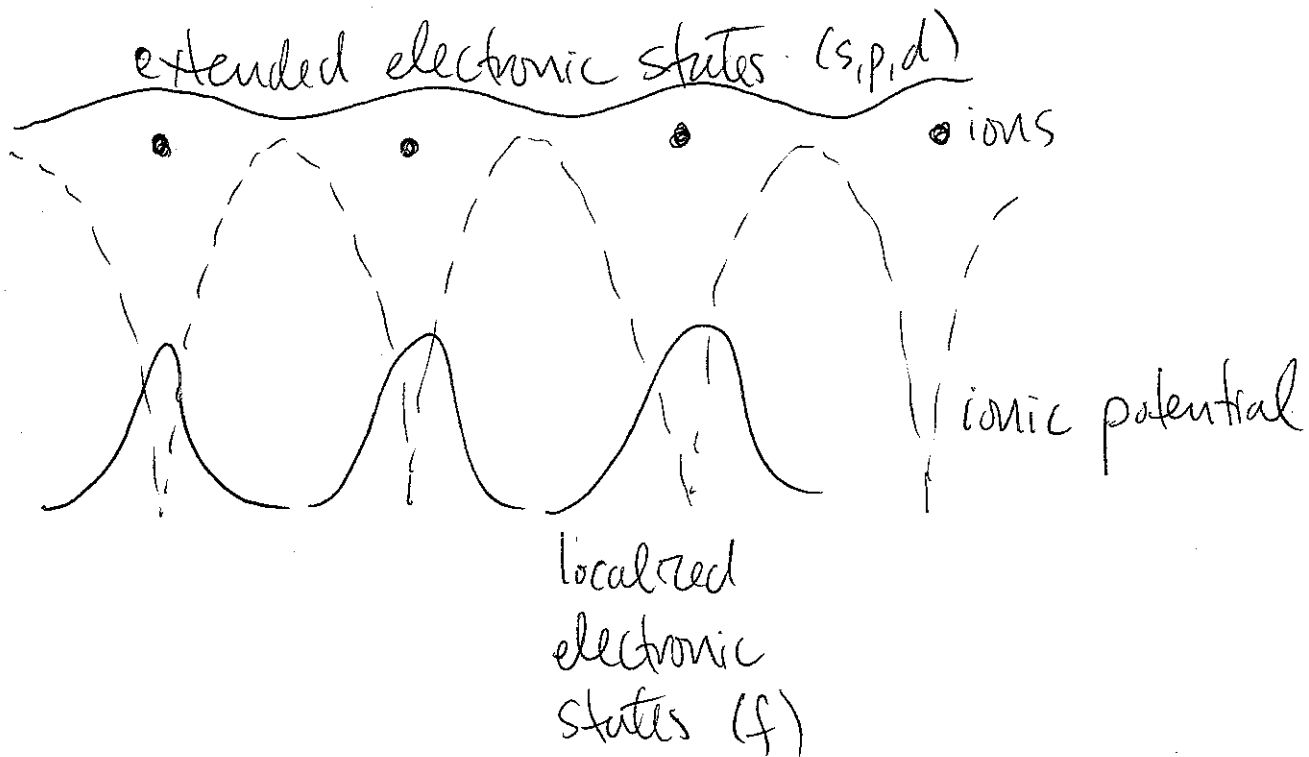 extended electronic states (s,p,d)
ions
ionic potential
localized
electronic
states (f)